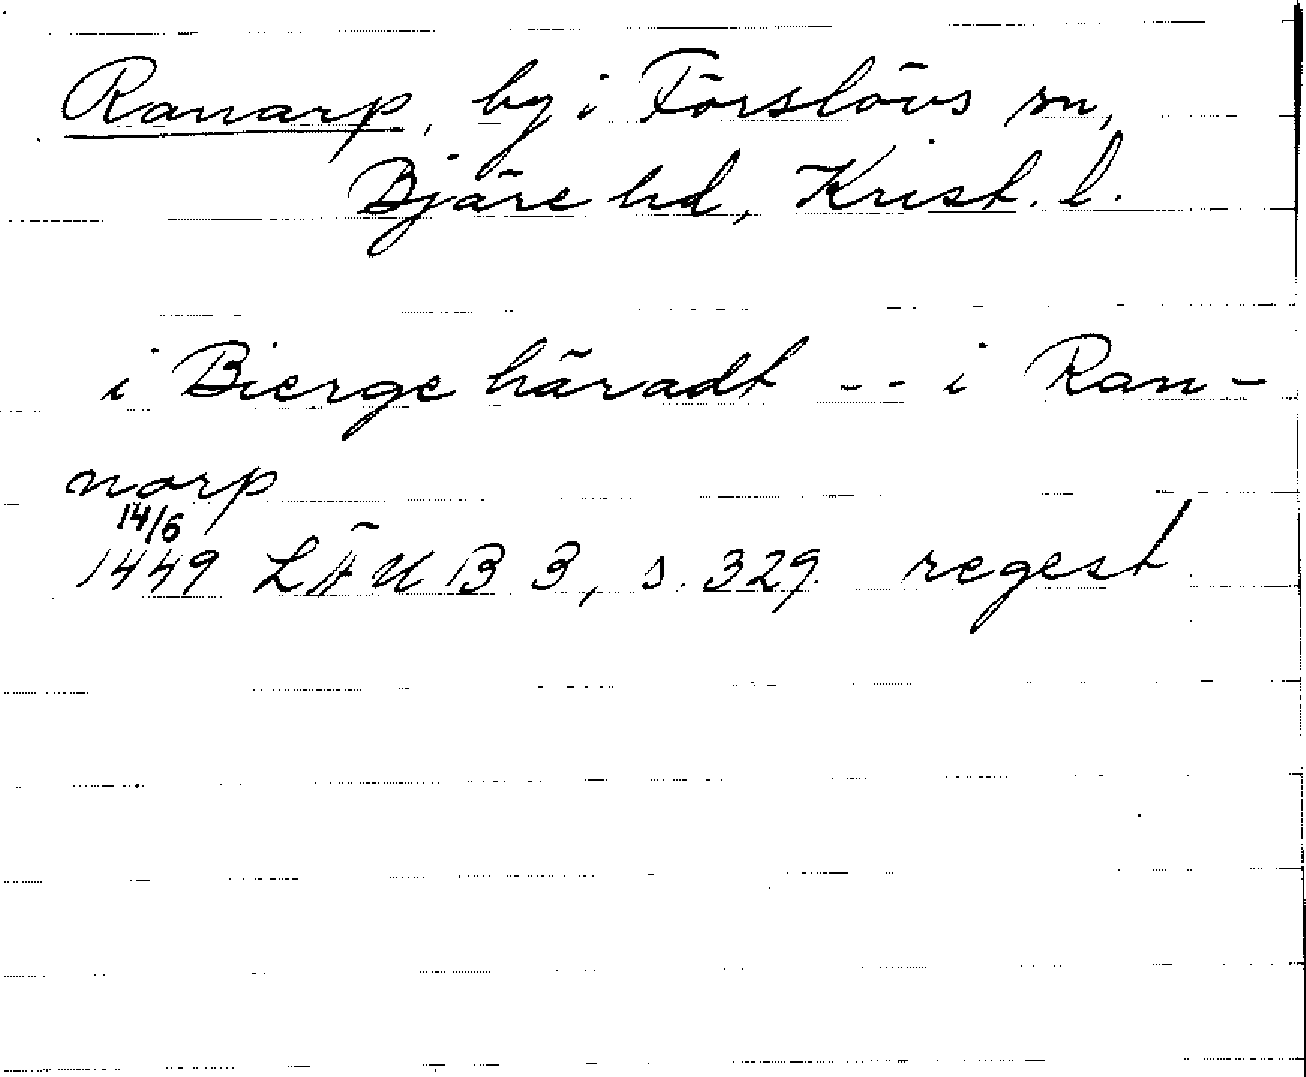 Ranarp, by i Förslövs sn,
Bjäre hd, Krist. l.
i Bierge häradt -- i Ran-
norp
14/6
1449 LÄUB 3, s. 329. regest